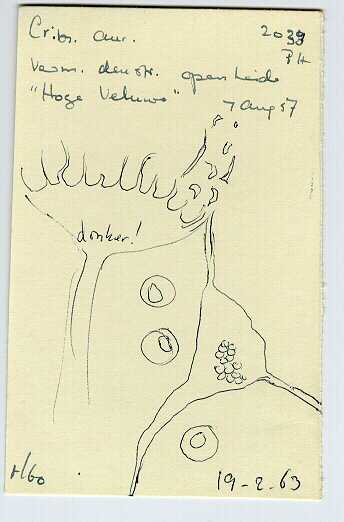 Cribr. aur. 2039
PH
Verm. den str. open heide
"Hoge Veluwe" 7 aug 57
donker!
H60
19-2-63